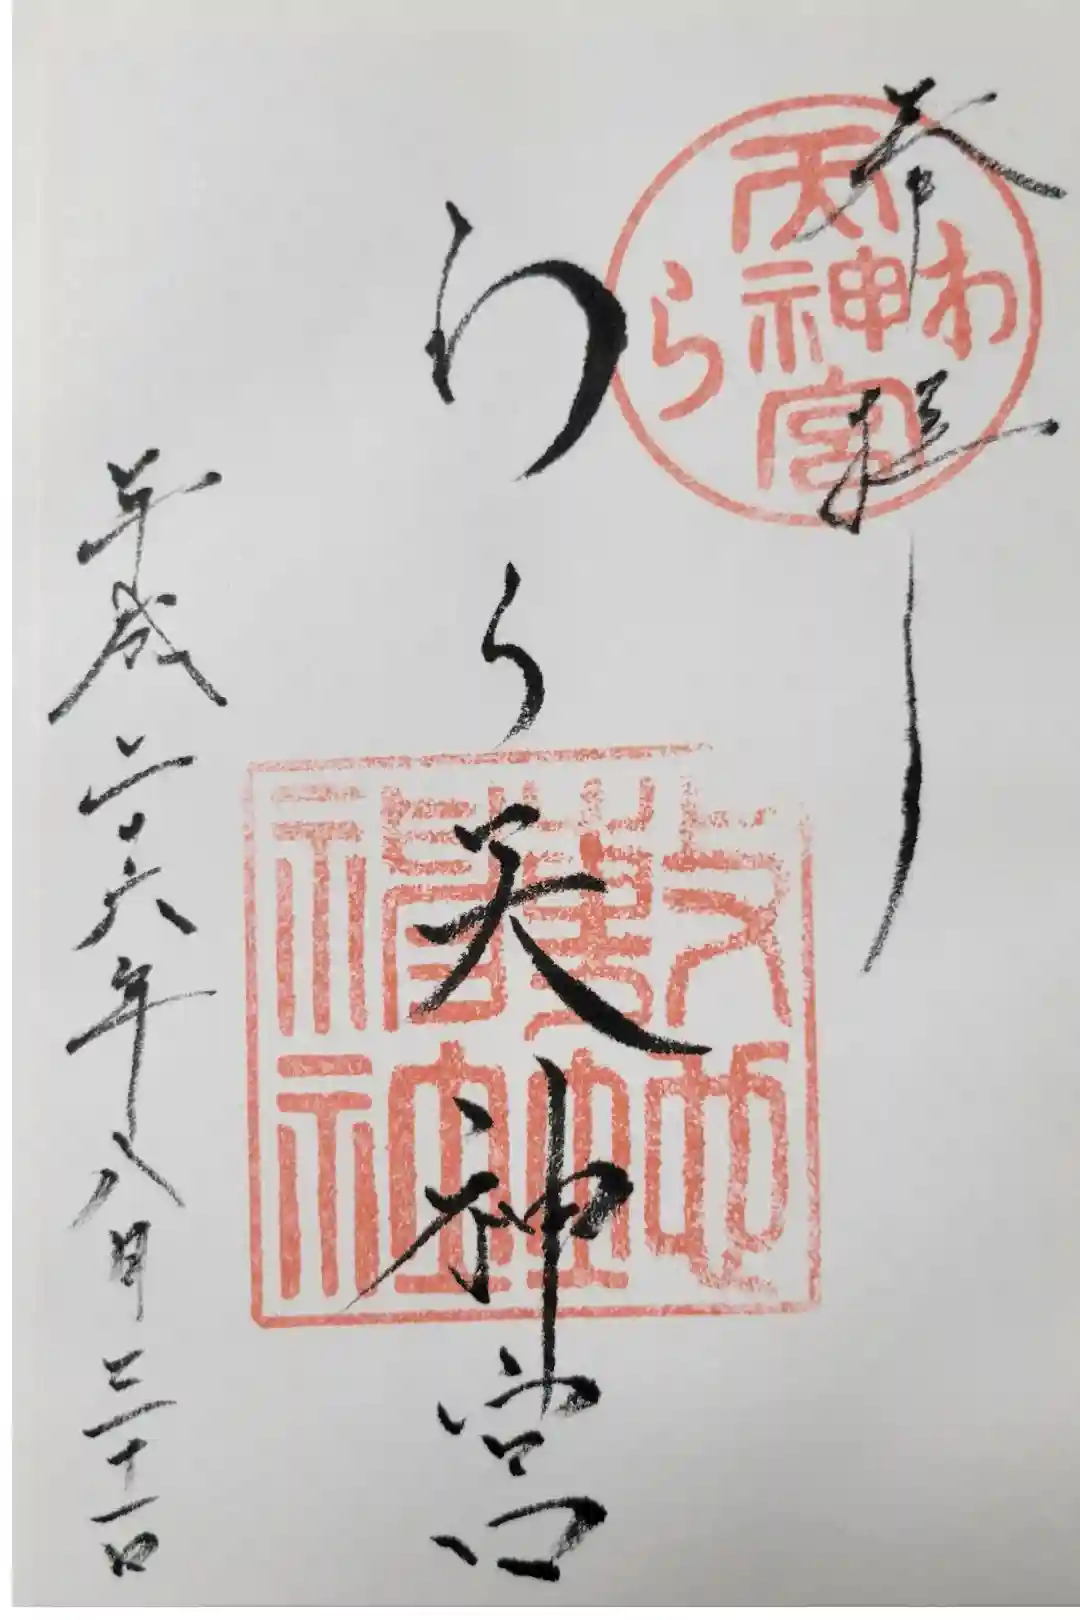 奉拝
わら天神宮
わら天神宮
平成二十六年八月三十一日